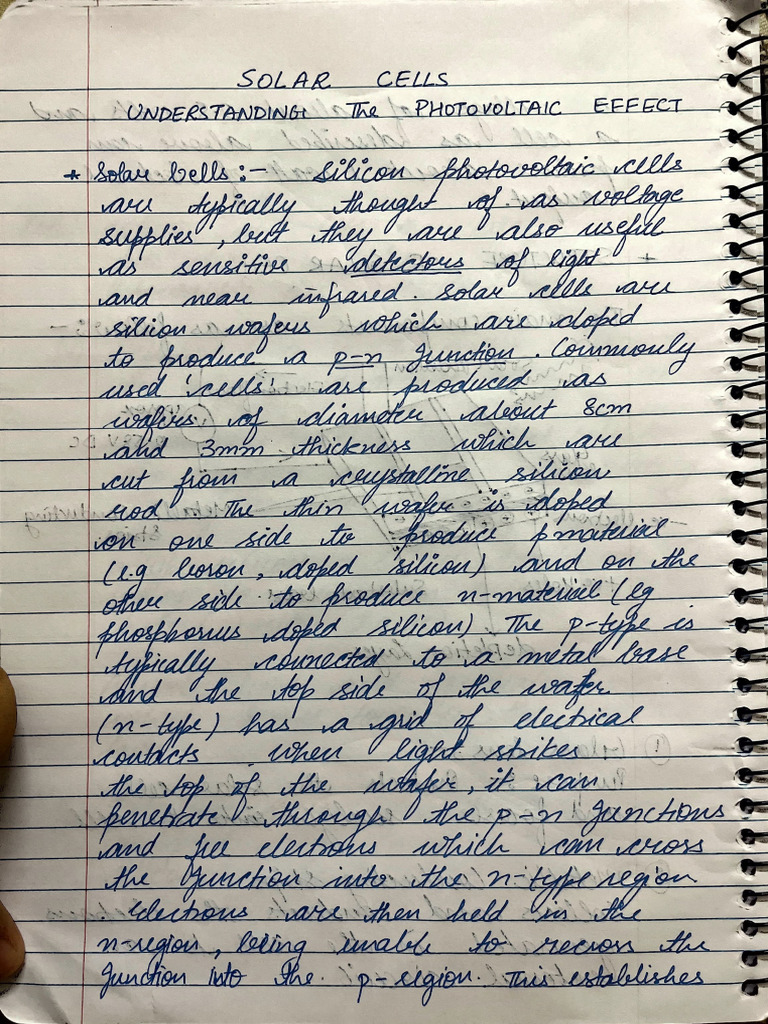 SOLAR CELLS
UNDERSTANDING The PHOTOVOLTAIC EFFECT
* Solar Cells :- Silicon photovoltaic cells
are typically thought of as voltage
supplies, but they are also useful
as sensitive detectors of light
and near infrared. Solar cells are
silicon wafers which are doped
to produce a p-n Junction. Commonly
used 'cells' are produced as
wafers of diameter about 8cm
and 3mm thickness which are
cut from a crystalline silicon
rod. The thin wafer is doped
on one side to produce p material
(e.g boron, doped silicon) and on the
other side to produce n-material (eg
phosphorus doped silicon). The p-type is
typically connected to a metal base
and the top side of the wafer.
(n-type) has a grid of electrical
contacts. when light strikes
the top of the wafer, it can
penetrate through the p-n Junctions
and free electrons which can cross
the Junction into the n-type region
. Electrons are then held in the
n-region, being unable to recross the
Junction into the p-region. This establishes